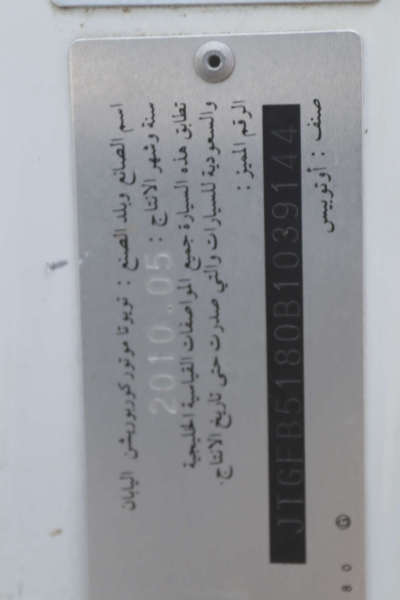 اسم الصانع وبلد الصنع : تويوتا موتور كوربوريشن اليابان
سنة وشهر الانتاج : 2010 . 05
تطابق هذه السيارة جميع المواصفات القياسية الخليجية
والسعودية للسيارات والتي صدرت حتى تاريخ الانتاج.
الرقم المميز :
JTGFB5180B1039144
صنف : أوتوبيس
80 G